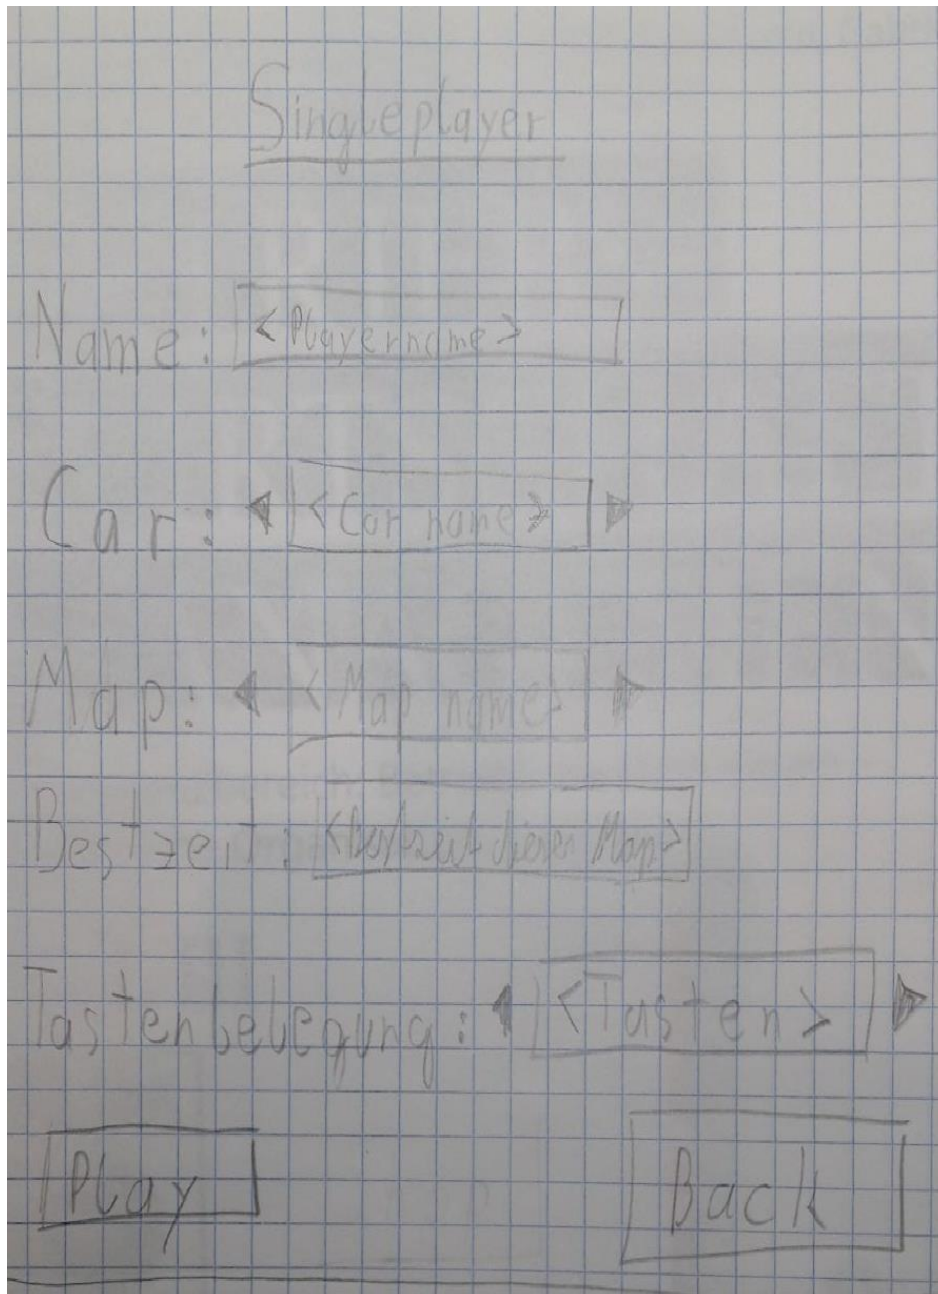 Singleplayer
Name: <Playername>
Car: ◀ <Car name> ▶
Map: ◀ <Map name> ▶
Bestzeit: <Bestzeit dieser Map>
Tastenbelegung: ◀ <Tasten> ▶
Play Back